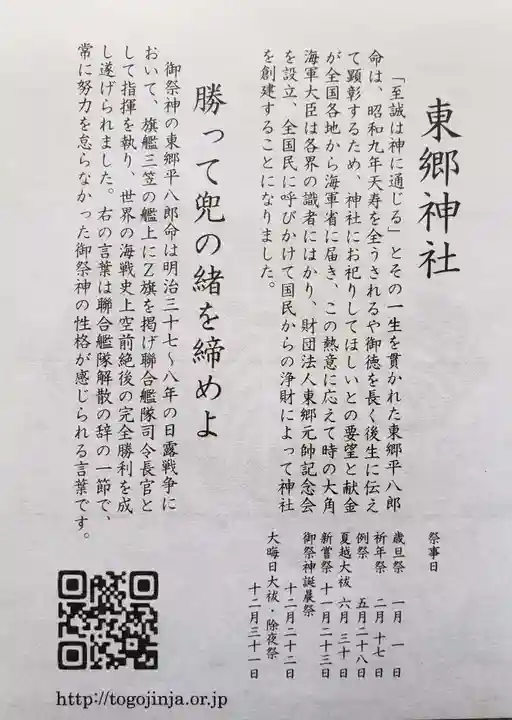 東郷神社
「至誠は神に通じる」とその一生を貫かれた東郷平八郎
命は、昭和九年天寿を全うされるや御徳を長く後生に伝え
て顕彰するため、神社にお祀りしてほしいとの要望と献金
が全国各地から海軍省に届き、この熱意に応えて時の大角
海軍大臣は各界の識者にはかり、財団法人東郷元帥記念会
を設立、全国民に呼びかけて国民からの浄財によって神社
を創建することになりました。
祭事日
歳旦祭 一月 一日
祈年祭 二月 十七日
例祭 五月二十八日
夏越大祓 六月 三十日
新嘗祭 十一月二十三日
御祭神誕晨祭
十二月二十二日
大晦日大祓・除夜祭
十二月三十一日
勝って兜の緒を締めよ
御祭神の東郷平八郎命は明治三十七〜八年の日露戦争に
おいて、旗艦三笠の艦上にZ旗を掲げ聯合艦隊司令長官と
して指揮を執り、世界の海戦史上空前絶後の完全勝利を成
し遂げられました。右の言葉は聯合艦隊解散の辞の一節で、
常に努力を怠らなかった御祭神の性格が感じられる言葉です。
http://togojinja.or.jp